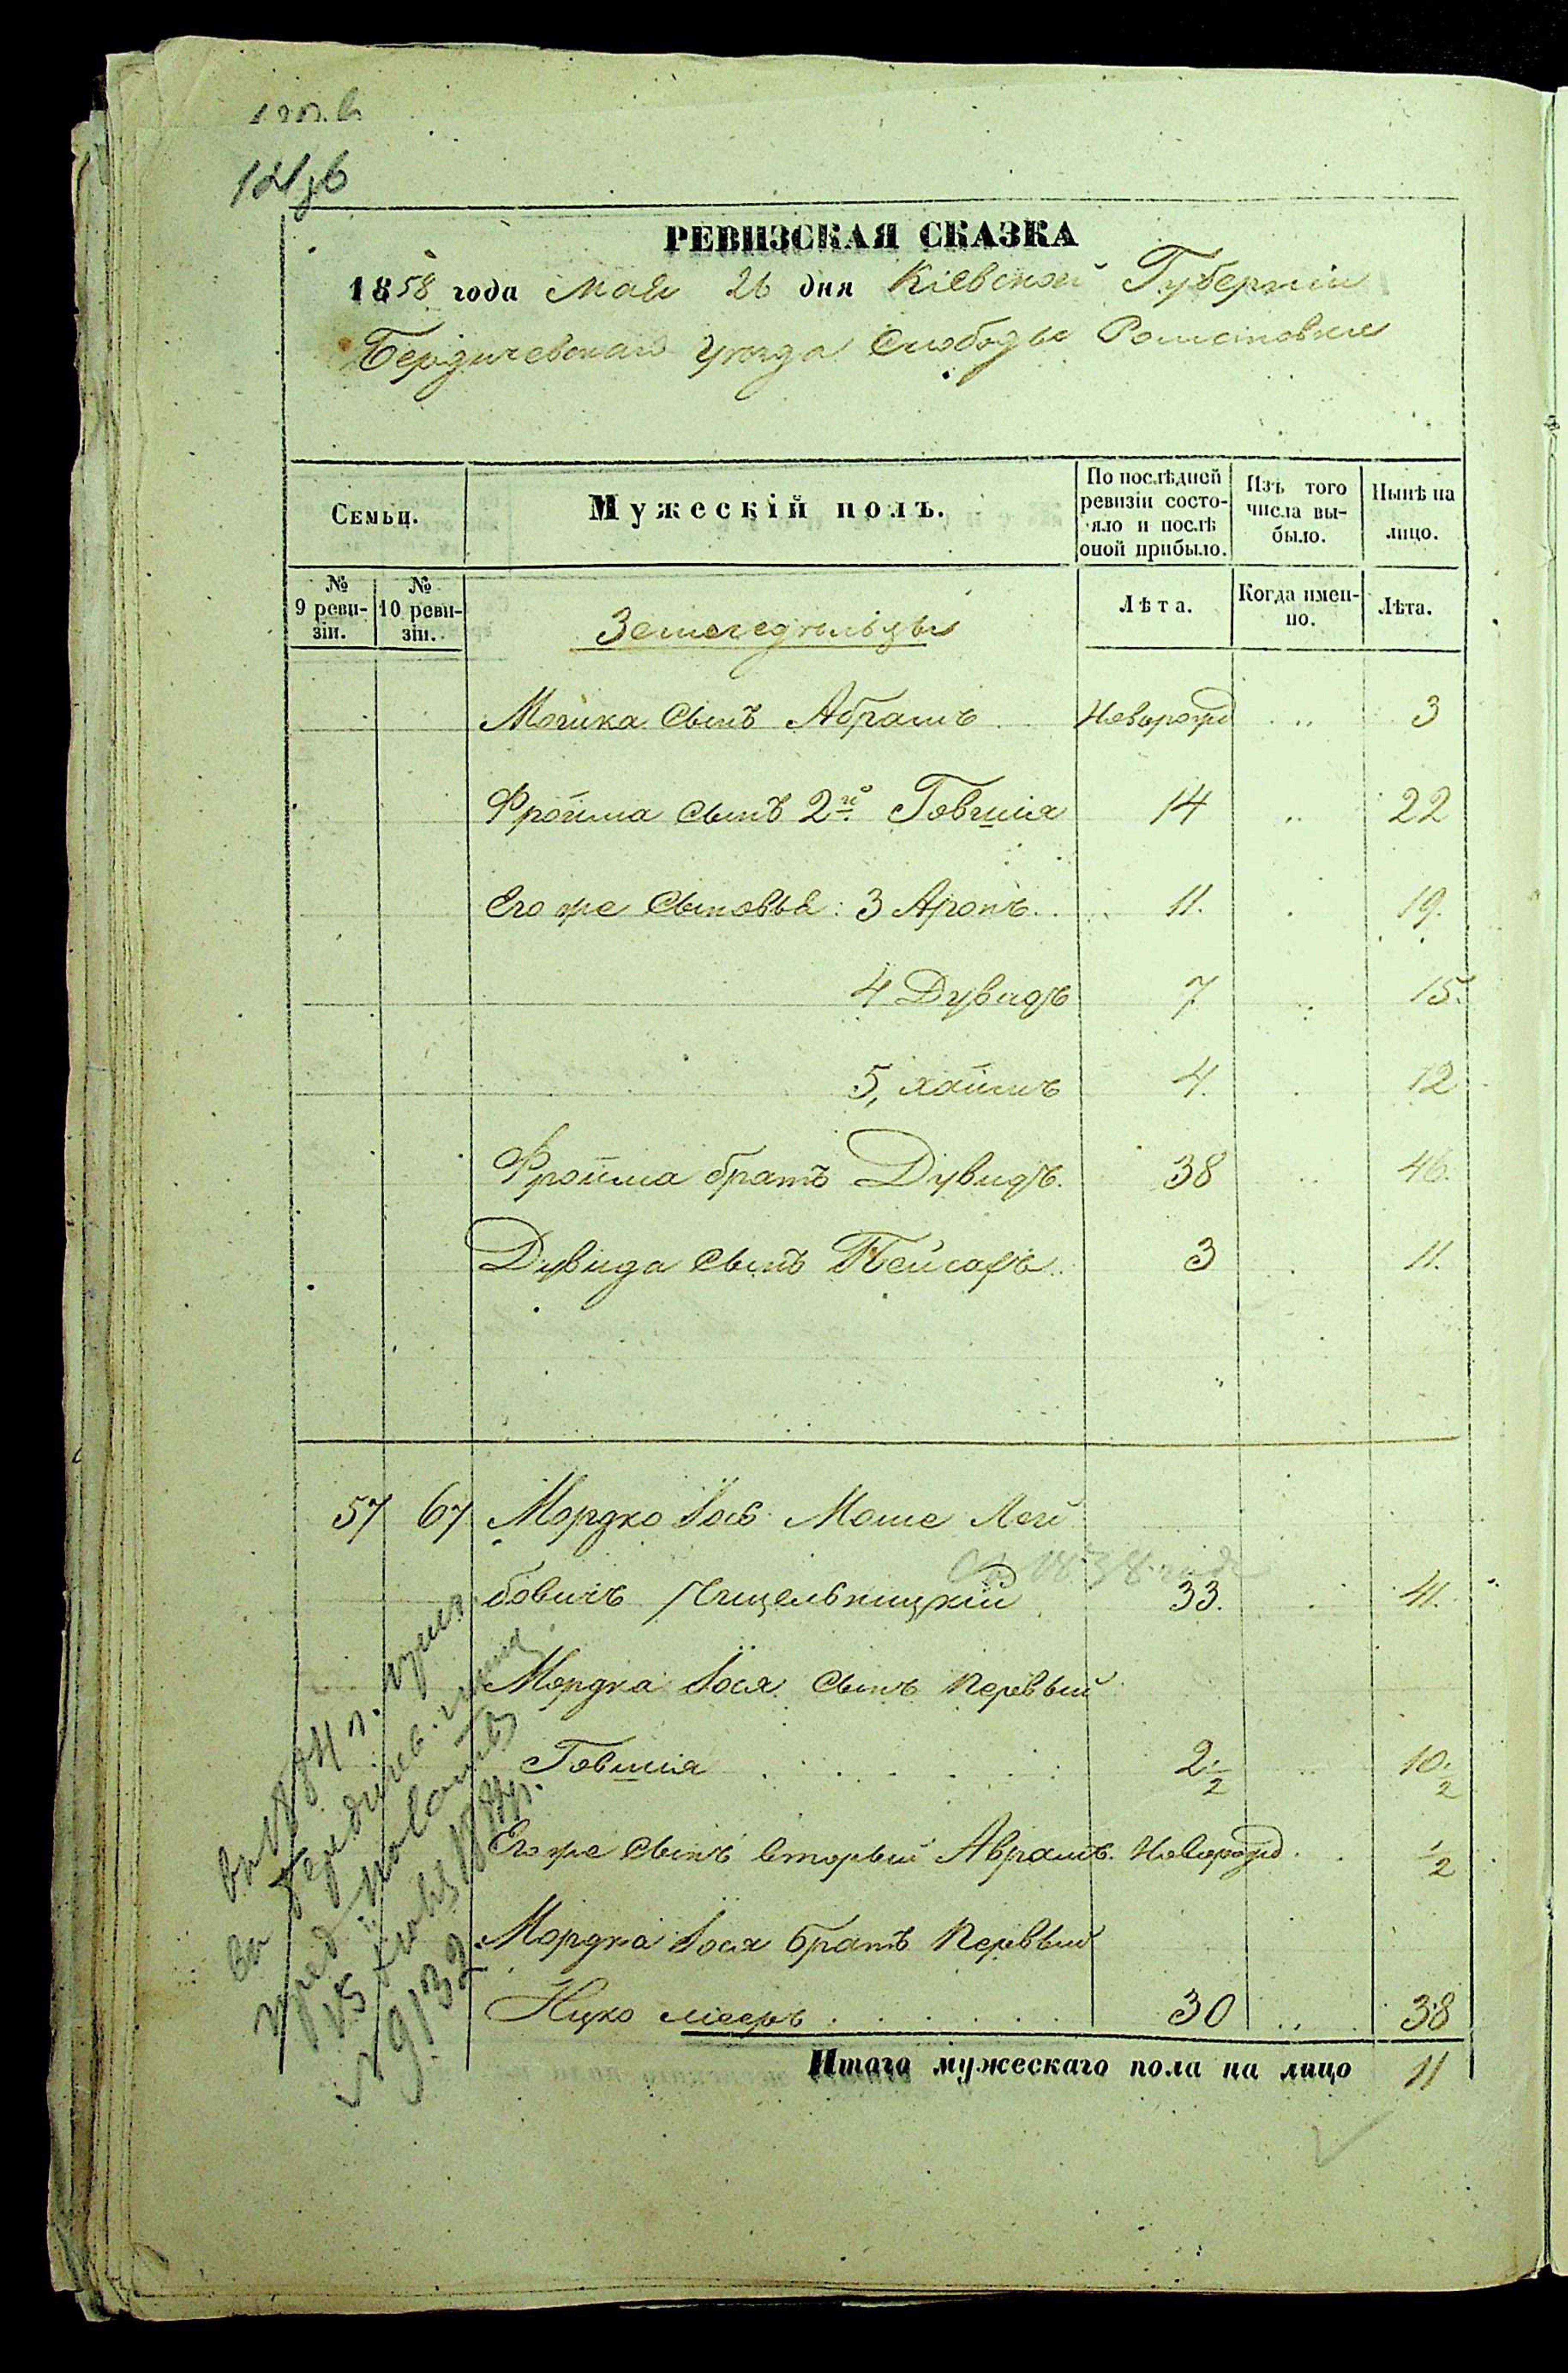 121об
РЕВИЗСКАЯ СКАЗКА
1858 года Мая 26 дня Кіевской Губерніи
Бердичевскаго Уѣзда Слободы Романовки
Семьи.
Мужескій полъ.
По послѣдней ревизіи состояло и послѣ оной прибыло.
Изъ того числа выбыло.
Нынѣ на лицо.
№ 9 ревизіи.
№ 10 ревизіи.
Земледѣльцы
Лѣта.
Когда именно.
Лѣта.
Мошка сынъ Абрамъ новорожд ״ 3
Фройма сынъ 2й Говшія 14 ״ 22
Его же сыновья: 3 Аронъ 11. 19.
4 Дувидъ 7 15.
5, Хаимъ 4. 12
Фройма братъ Дувидъ. 38 46.
Дувида сынъ Пейсахъ 3 11.
57 67 Мордко Іось Моше Лей
бовичъ 33. 41.
Мордка Іося сынъ первый
Говшія 2 1/2 10 1/2
Его же сынъ вторый Аврамъ. новорожд 1/2
Мордка Іося братъ первый
Ицко Мееръ 30 38
Итого мужескаго пола на лицо 11
№ 9132